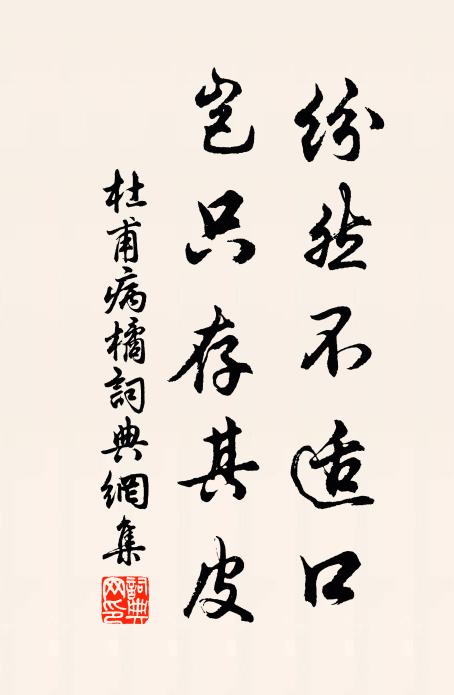 纷然不适口
岂只存其皮
杜甫病橘詞典網集
詞典网印